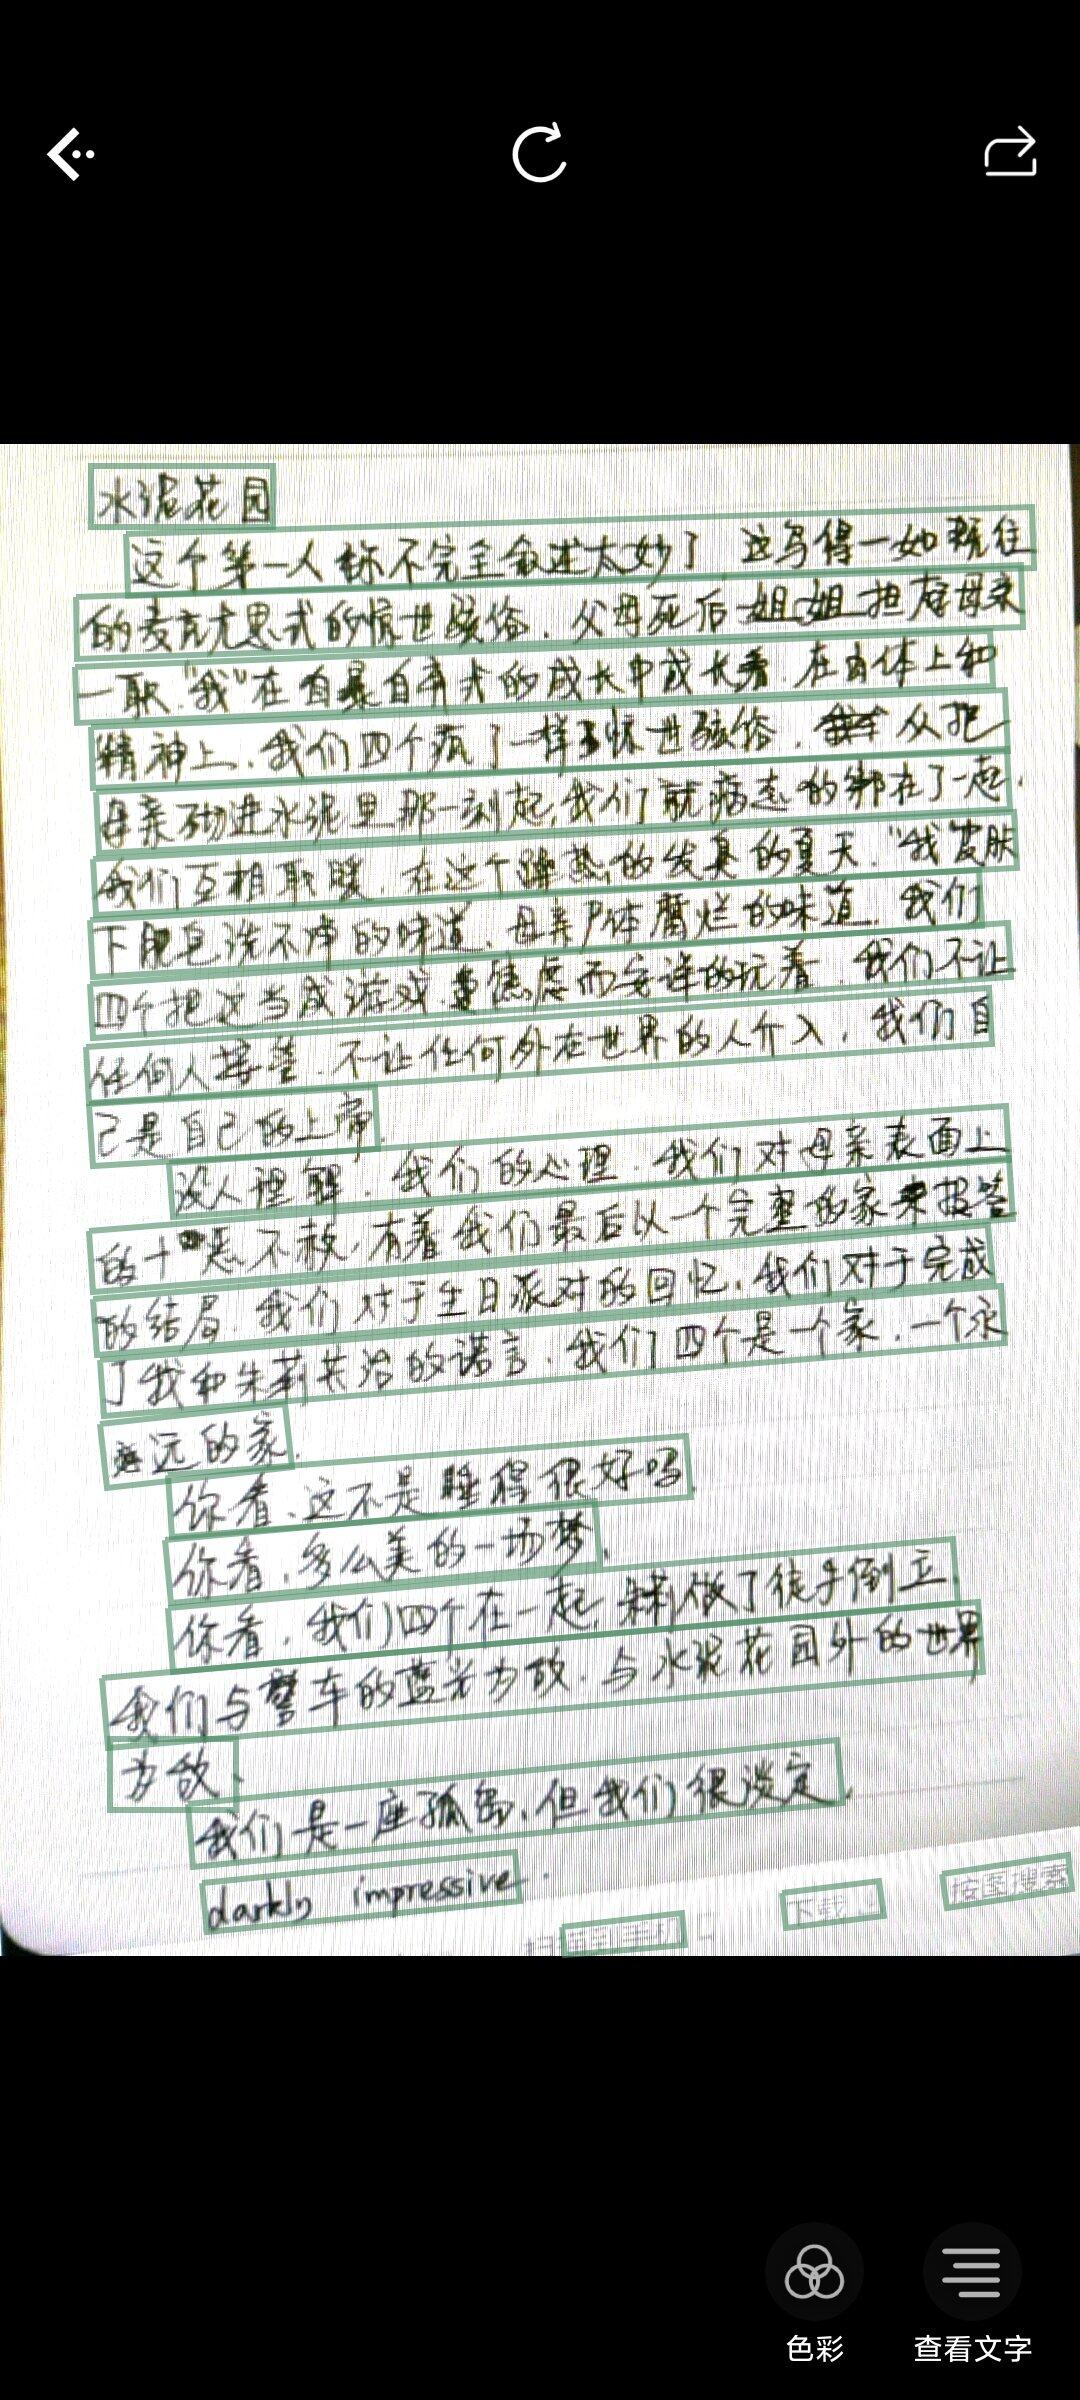 水泥花园
这个第一人称不完全叙述太妙了 这写得一如既往
的麦克尤恩式的惊世骇俗. 父母死后 姐姐担存母亲
一职. "我"在自暴自弃式的成长中成长着. 在肉体上和
精神上. 我们四个疯了一样惊世骇俗. 从把
母亲砌进水泥里那一刻起, 我们就病态的绑在了一起.
我们互相取暖. 在这个燥热的发臭的夏天. "我"皮肤
下脱皂洗不掉的味道. 母亲尸体腐烂的味道. 我们
四个把这当成游戏. 焦虑而安详的玩着. 我们不让
任何人接管. 不让任何外在世界的人介入. 我们自
己是自己的上帝.
没人理解. 我们的心理. 我们对母亲表面上
的十恶不赦. 有着我们最后以一个完整的家来报答
的结局. 我们对于生日派对的回忆. 我们对于完成
了我和朱莉共治的诺言. 我们四个是一个家. 一个永
远的家.
你看. 这不是睡得很好吗.
你看. 多么美的一场梦.
你看. 我们四个在一起, 朱莉做了徒手倒立.
我们与警车的蓝光为敌. 与水泥花园外的世界
为敌.
我们是一座孤岛. 但我们很淡定.
darkly impressive.
下载
按图搜索
色彩
查看文字